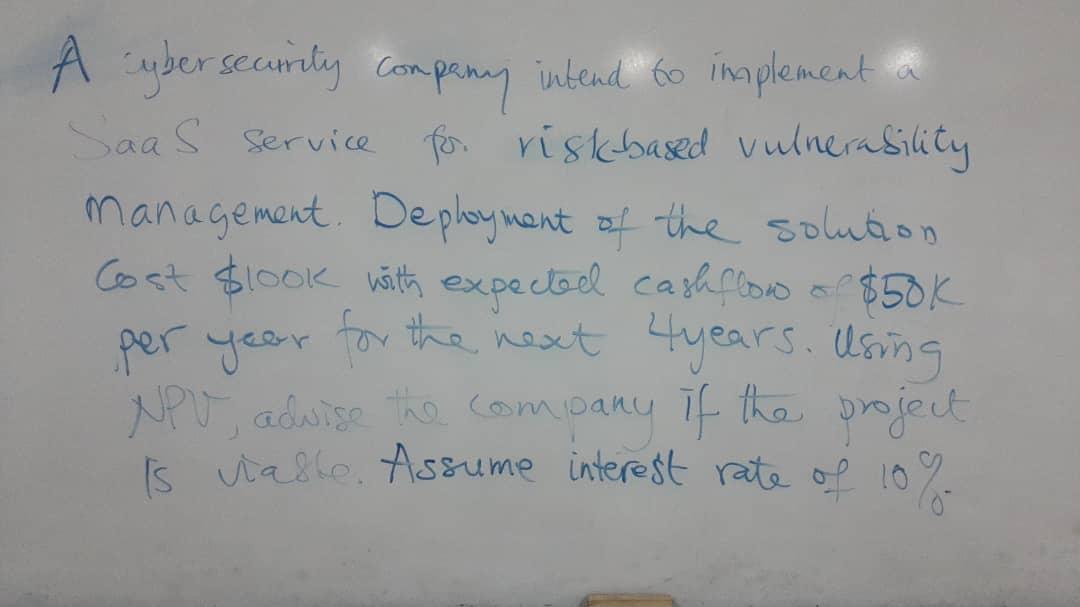 A cybersecurity company intend to implement a
SaaS service for risk-based vulnerability
Management. Deployment of the solution
Cost $100K with expected cashflow of $50K
per year for the next 4years. Using
NPV, advise the company if the project
is viable. Assume interest rate of 10%